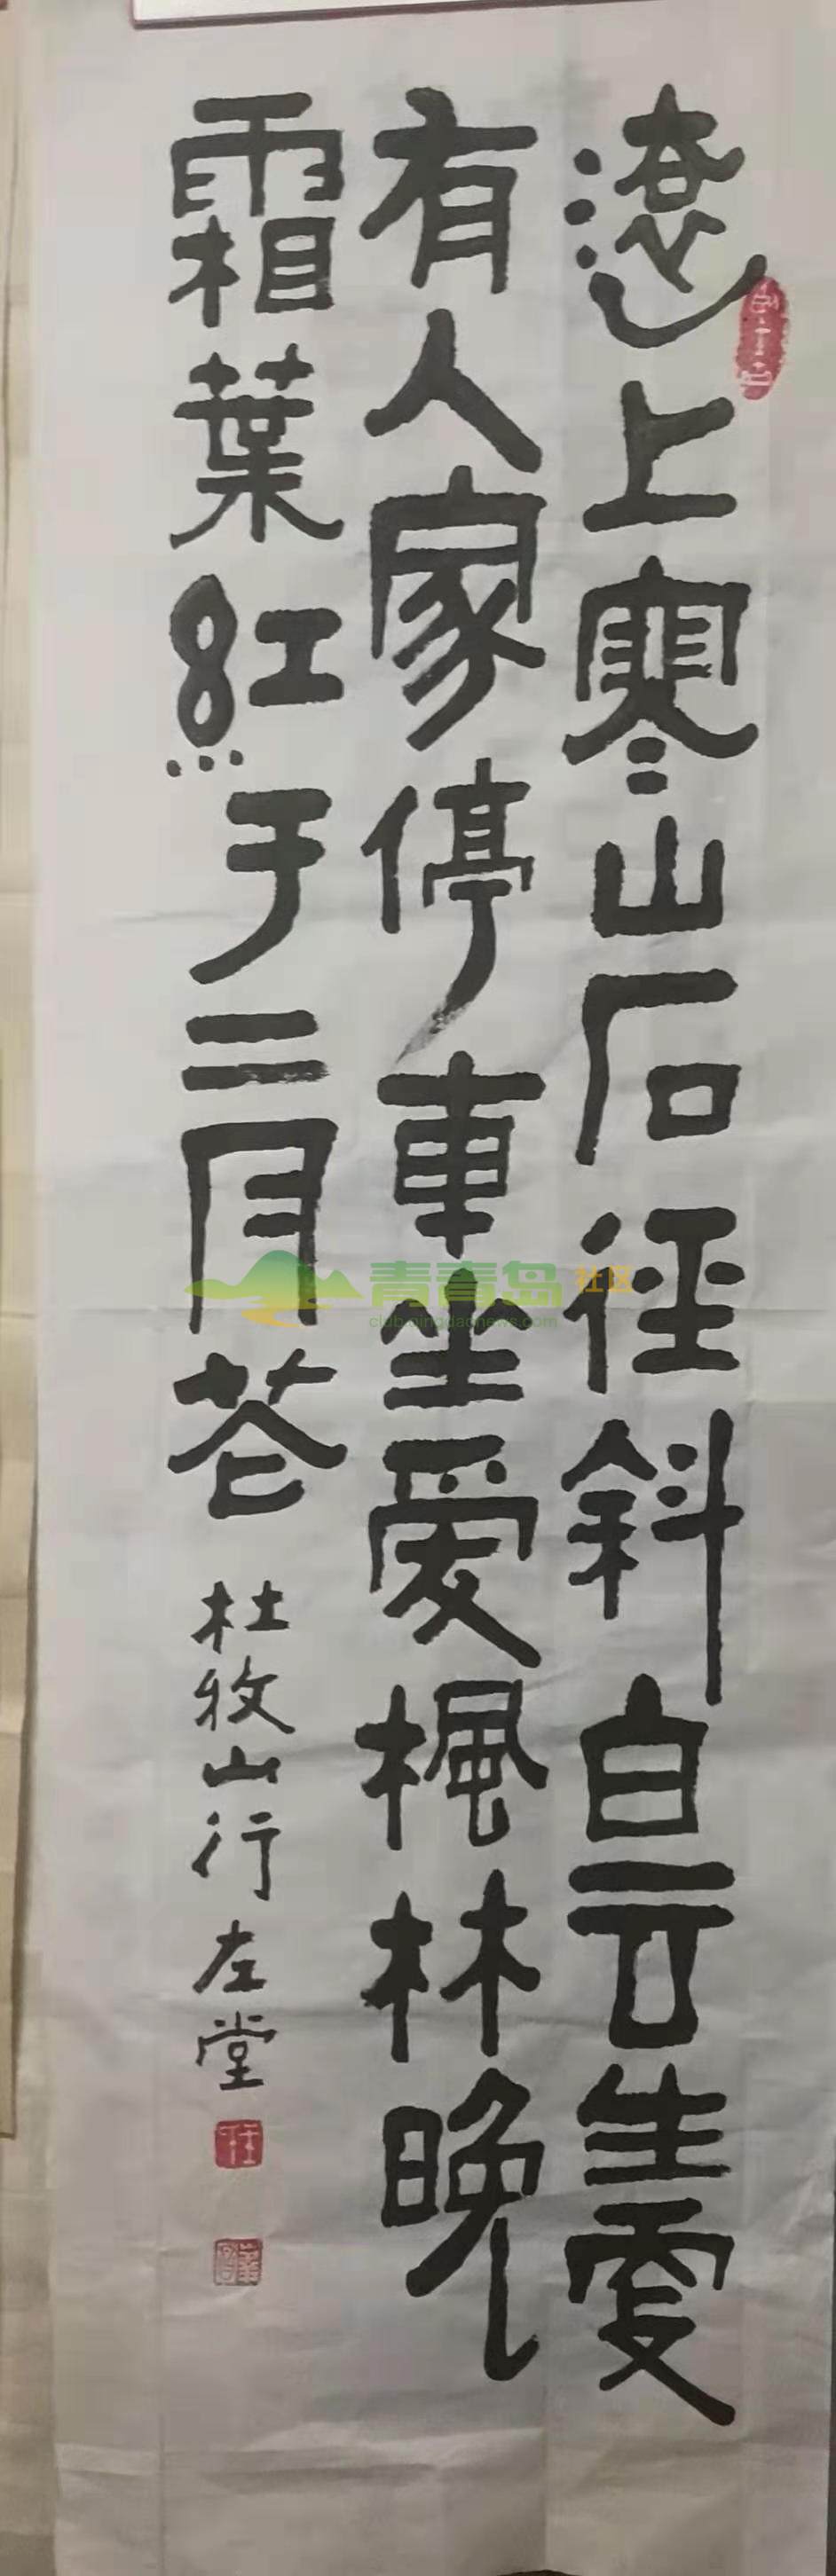 遠上寒山石徑斜白云生處
有人家停車坐爱楓林晚
霜葉紅于二月花
杜牧山行左堂
青青岛社区
club.qingdaonews.com